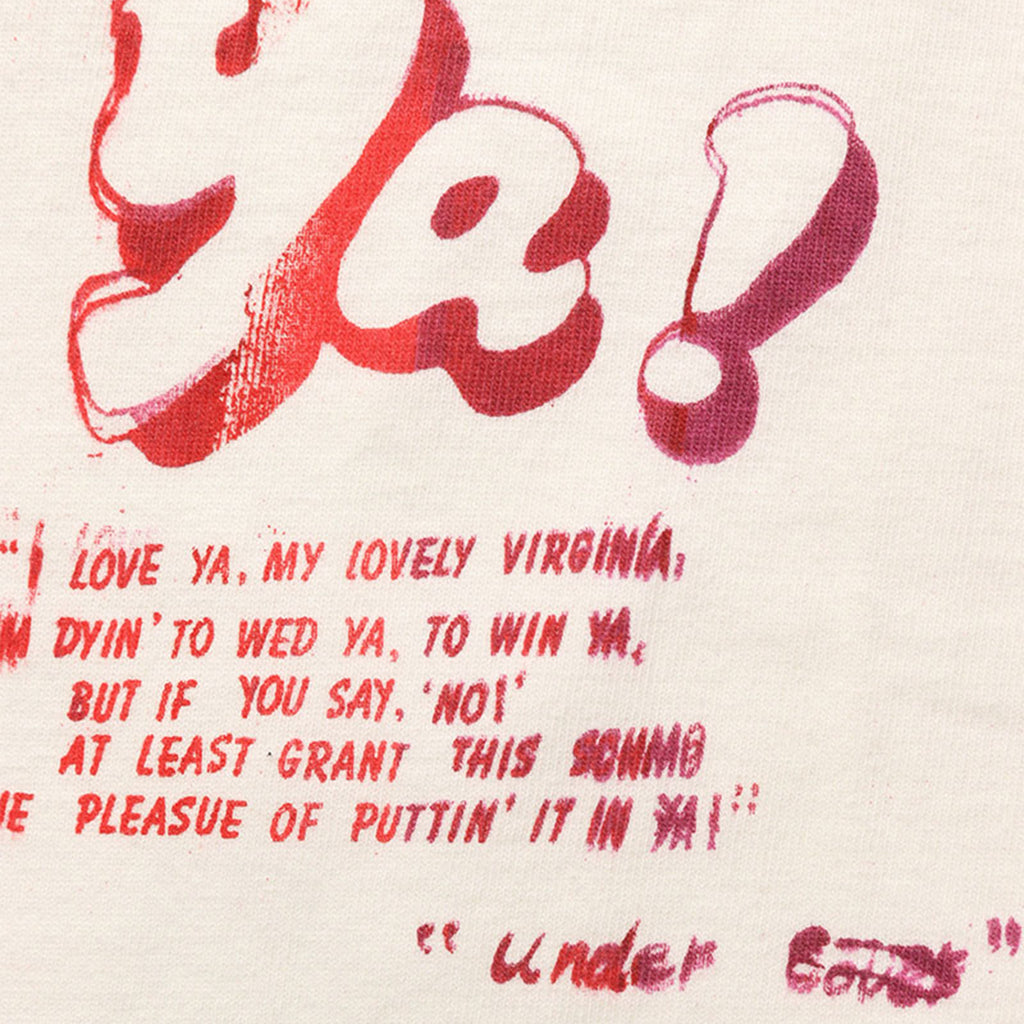 Ya!
"I LOVE YA, MY LOVELY VIRGINIA,
M DYIN' TO WED YA, TO WIN YA,
BUT IF YOU SAY, 'NO!'
AT LEAST GRANT THIS SCHMO
HE PLEASUE OF PUTTIN' IT IN YA!"
"under "